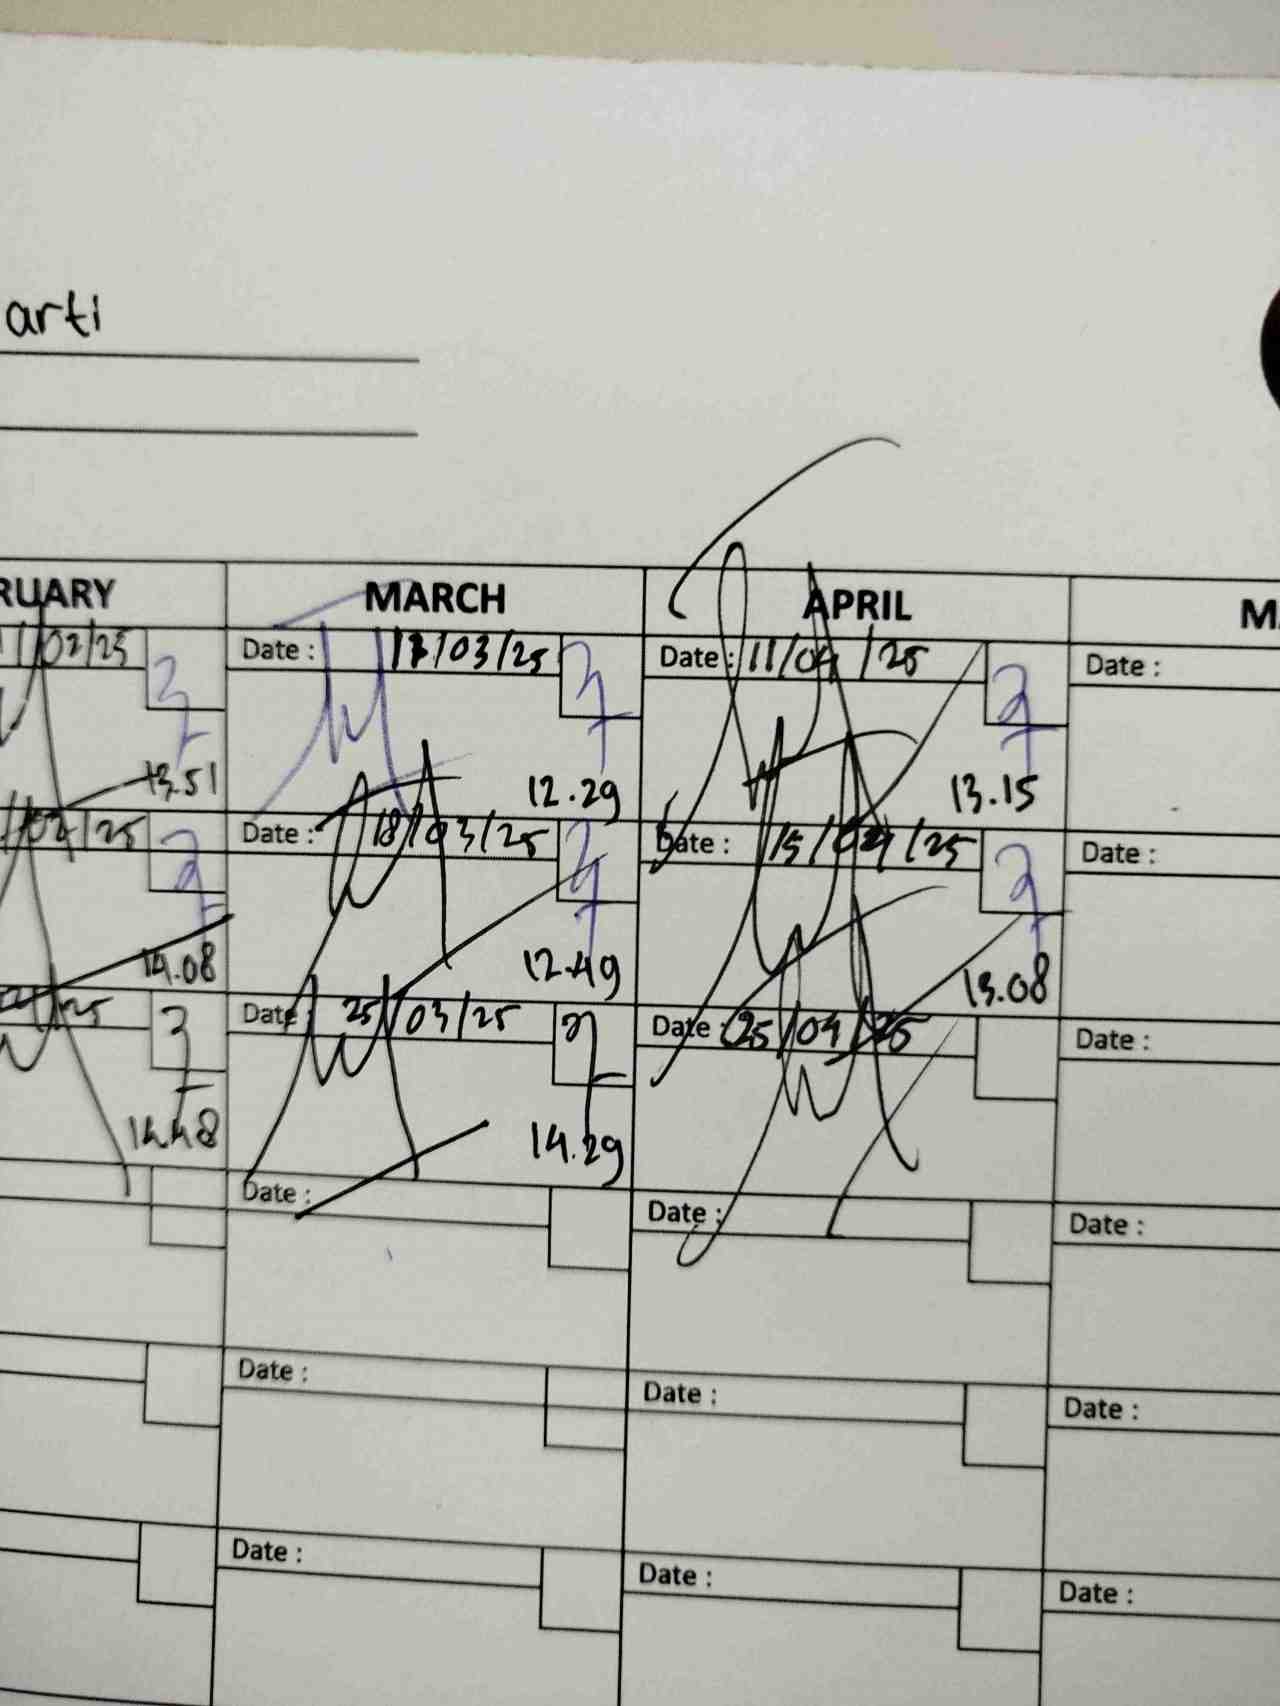 arti
RUARY MARCH APRIL
/02/25 Date : /03/25 Date : 11/04/25 Date :
13.51 12.29 13.15
/25 Date : 18/03/25 Date : 15/04/25 Date :
14.08 12.49 13.08
/25 Date : 25/03/25 Date : 25/04/25 Date :
14.48 14.29
Date : Date : Date :
Date : Date : Date :
Date : Date : Date :